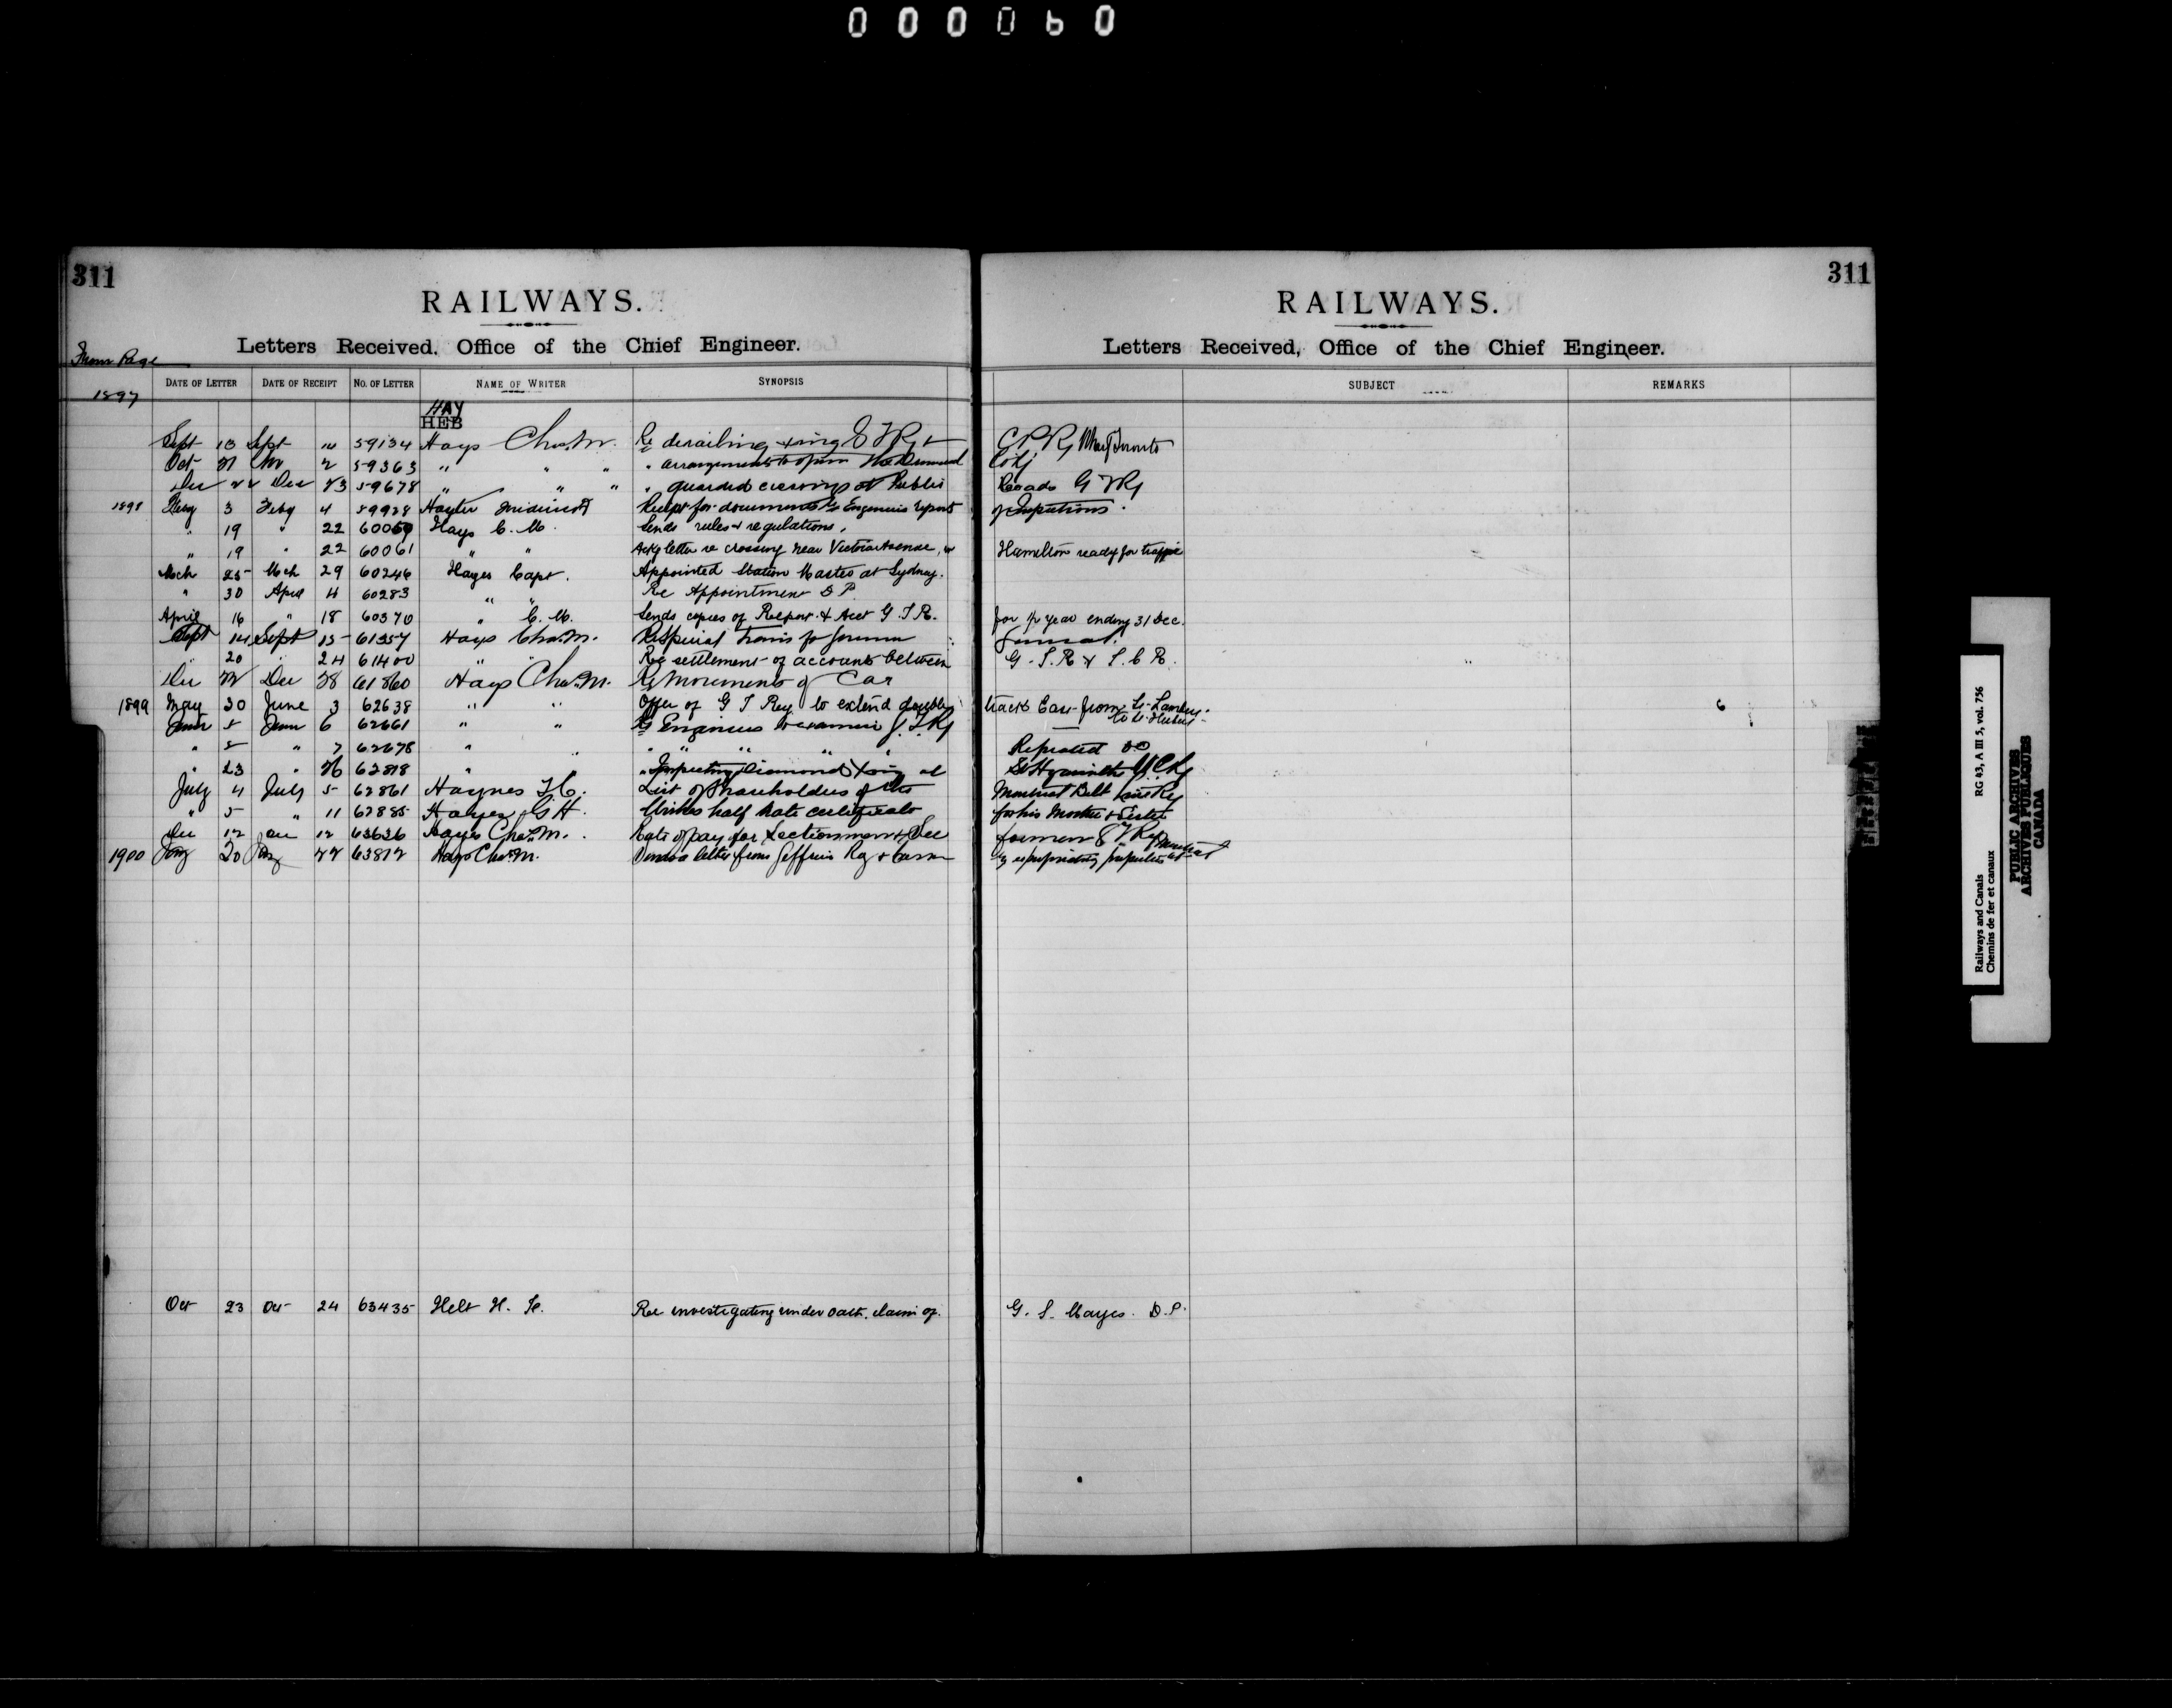 000060
311
RAILWAYS.
Letters Received, Office of the Chief Engineer.
From Page
DATE OF LETTER DATE OF RECEIPT NO. OF LETTER NAME OF WRITER SYNOPSIS
1897
HAY
HEB
Sept 13 Sept 14 59134 Hays Chas. M. Re derailing xing G T Ry & C P Ry Toronto
Oct 31 2 59363 " " " " arrangements to open the Drummond Co Ry
Dec 22 Dec 23 59678 " " " " guarded crossings at Public Roads G T Ry
1898 Feby 3 Feby 4 59928 Hayter Recpt for documents Re Engineers reports of Inspections.
" 19 " 22 60059 Hays C. M. Sends rules & regulations.
" 19 " 22 60061 " " Ackg letter re crossing near Victoria Avenue, in Hamilton ready for traffic
Mch 25 Mch 29 60246 Hayes Capt. Appointed Station Master at Sydney.
" 30 April 4 60283 " " Re Appointment D P.
April 16 " 18 60370 " C. M. Sends copies of Report & Acct G. T. R. for ½ year ending 31 Dec.
Sept 14 Sept 15 61357 Hays Chas. M. Re Special trains for
" 20 " 24 61400 " " Re settlement of accounts between G. T. R & I. C R.
Dec 27 Dec 28 61860 Hays Chas. M. Re Movements of Car
1899 May 30 June 3 62638 " " Offer of G T Rey. to extend double track East from St. Lambert to St. Hubert
June 5 June 6 62661 " " Re Engineers to examine G. T. Ry
" 5 " 7 62678 " " " " " " " Repeated DO
" 23 " 26 62818 " " Inspecting Diamond Xing at St Hyacinthe
July 4 July 5 62861 Haynes List of Shareholders of the Montreal Belt Line Ry
" 5 " 11 62885 Hayes G H Wishes half Rate certificate for his Mother & Sister
Dec 12 Dec 12 63636 Hays Chas. M. Rate of pay for Sectionmen & Sec foremen G T Ry
1900 Jany 20 Jany 22 63812 Hays Chas. M. letter from Jeffries Re expropriating properties at Montreal
Oct 23 Oct 24 63435 Helt H. H. Re investigating under oath, claim of G. S. Mayes. D. P.
311
RAILWAYS.
Letters Received, Office of the Chief Engineer.
SUBJECT REMARKS
6
Railways and Canals RG 43, A III 5, vol. 756
Chemins de fer et canaux
PUBLIC ARCHIVES
ARCHIVES PUBLIQUES
CANADA